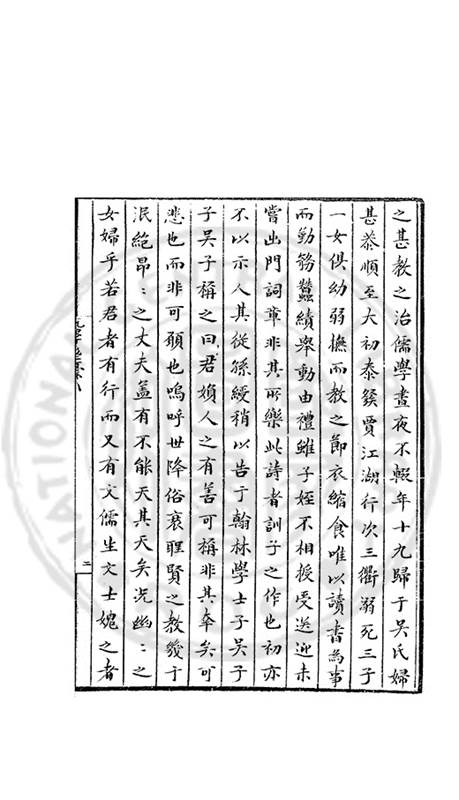 之甚教之治儒學晝夜不輟年十九歸于吳氏婦
甚恭順至大初泰發賈江湖行次三衢溺死三子
一女俱幼弱撫而教之節衣縮食唯以讀書為事
而勤筋蠶績舉動由禮雖子姪不相授受送迎未
嘗出門詞章非其所樂此詩者訓子之作也初亦
不以示人其從孫綬稍以告于翰林學士子吳子
子吳子稱之曰君嬪人之有善可稱非其幸矣可
悲也而非可願也嗚呼世降俗衰聖賢之教幾于
泯絕昂：之丈夫蓋有不能天其天矣況幽：之
女婦乎若君者有行而又有文儒生文士媿之者
二